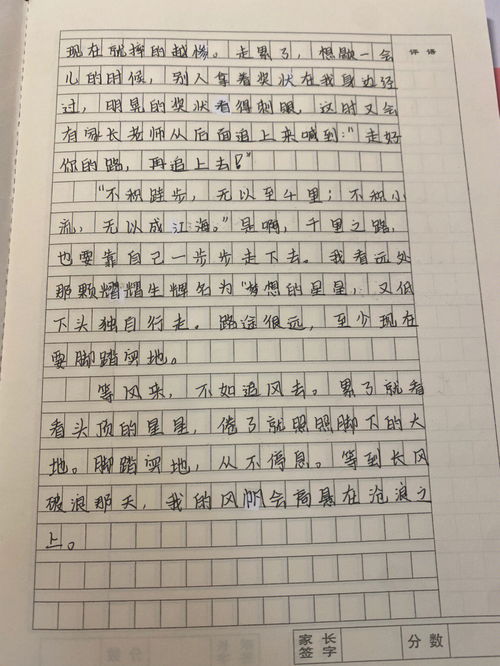 现在就摔的越惨。走累了，想歇一会
评语
儿的时候，别人拿着奖状在我身边经
过，明晃的奖状看得刺眼，这时又会
有家长老师从后面追上来喊到：“走好
你的路，再追上去！”
“不积跬步，无以至千里；不积小
流，无以成江海。”是啊，千里之路，
也要靠自己一步步走下去。我看远处
那颗熠耀生辉名为“梦想的星星，又低
下头独自行走。路途很远，至少现在
要脚踏实地。
等风来，不如追风去。累了就看
看头顶的星星，倦了就照照脚下的大
地。脚踏实地，从不停息。等到长风
破浪那天，我的风帆会高悬在沧浪之
上。
家长签字
分数